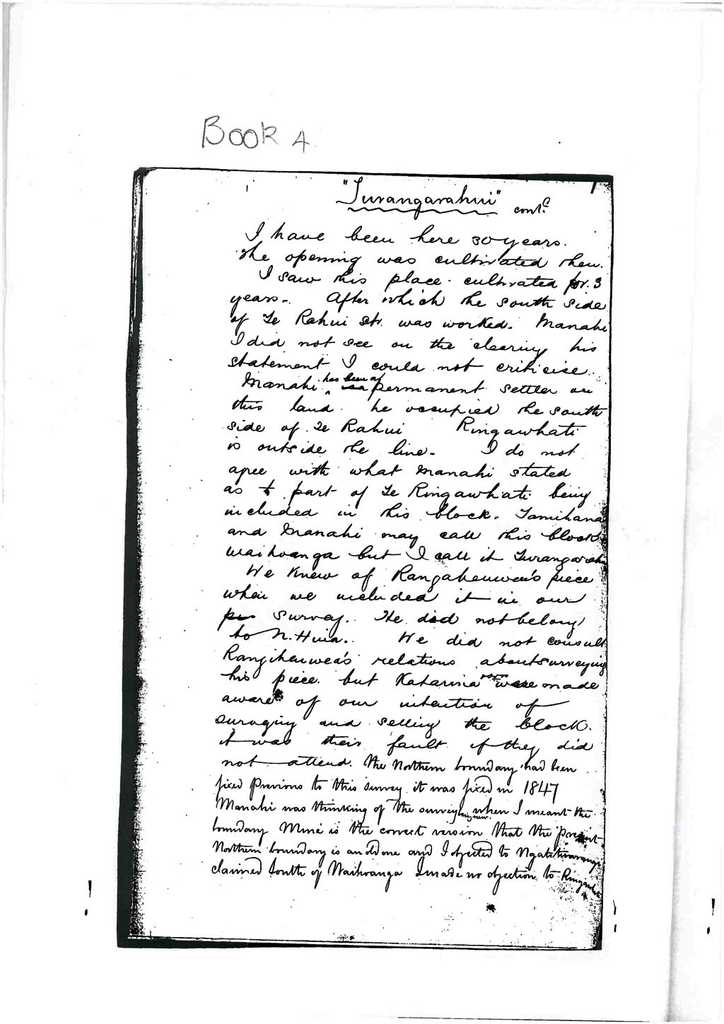 Book 4
1
"Turangarahui" cont.d
I have been here 30 years.
The opening was cultivated then.
I saw this place cultivated for 3
years. After which the south side
of Te Rahui str. was worked. Manahi
I did not see on the clearing his
statement I could not criticise.
Manahi has been a permanent settler on
this land. he occupied the south
side of Te Rahui Ringawhati
is outside the line. I do not
agree with what Manahi stated
as to part of Te Ringawhati being
included in this block. Tamihana
and Manahi may call this block
Waihoanga but I call it Turangarahui
We knew of Rangiheuwea's piece
when we included it in our
survey. He did not belong
to N. Huia. We did not consult
Rangiheuwea's relations about surveying
his piece. but Katarina were made
aware of our intention of
surveying and selling the block.
it was their fault if they did
not attend. The Northern boundary had been
fixed previous to this survey it was fixed in 1847
Manahi was thinking of the survey when I meant the
boundary Mine is the correct version that the present
Northern boundary is an old one and I objected to
claimed South of Waihoanga I made no objection to